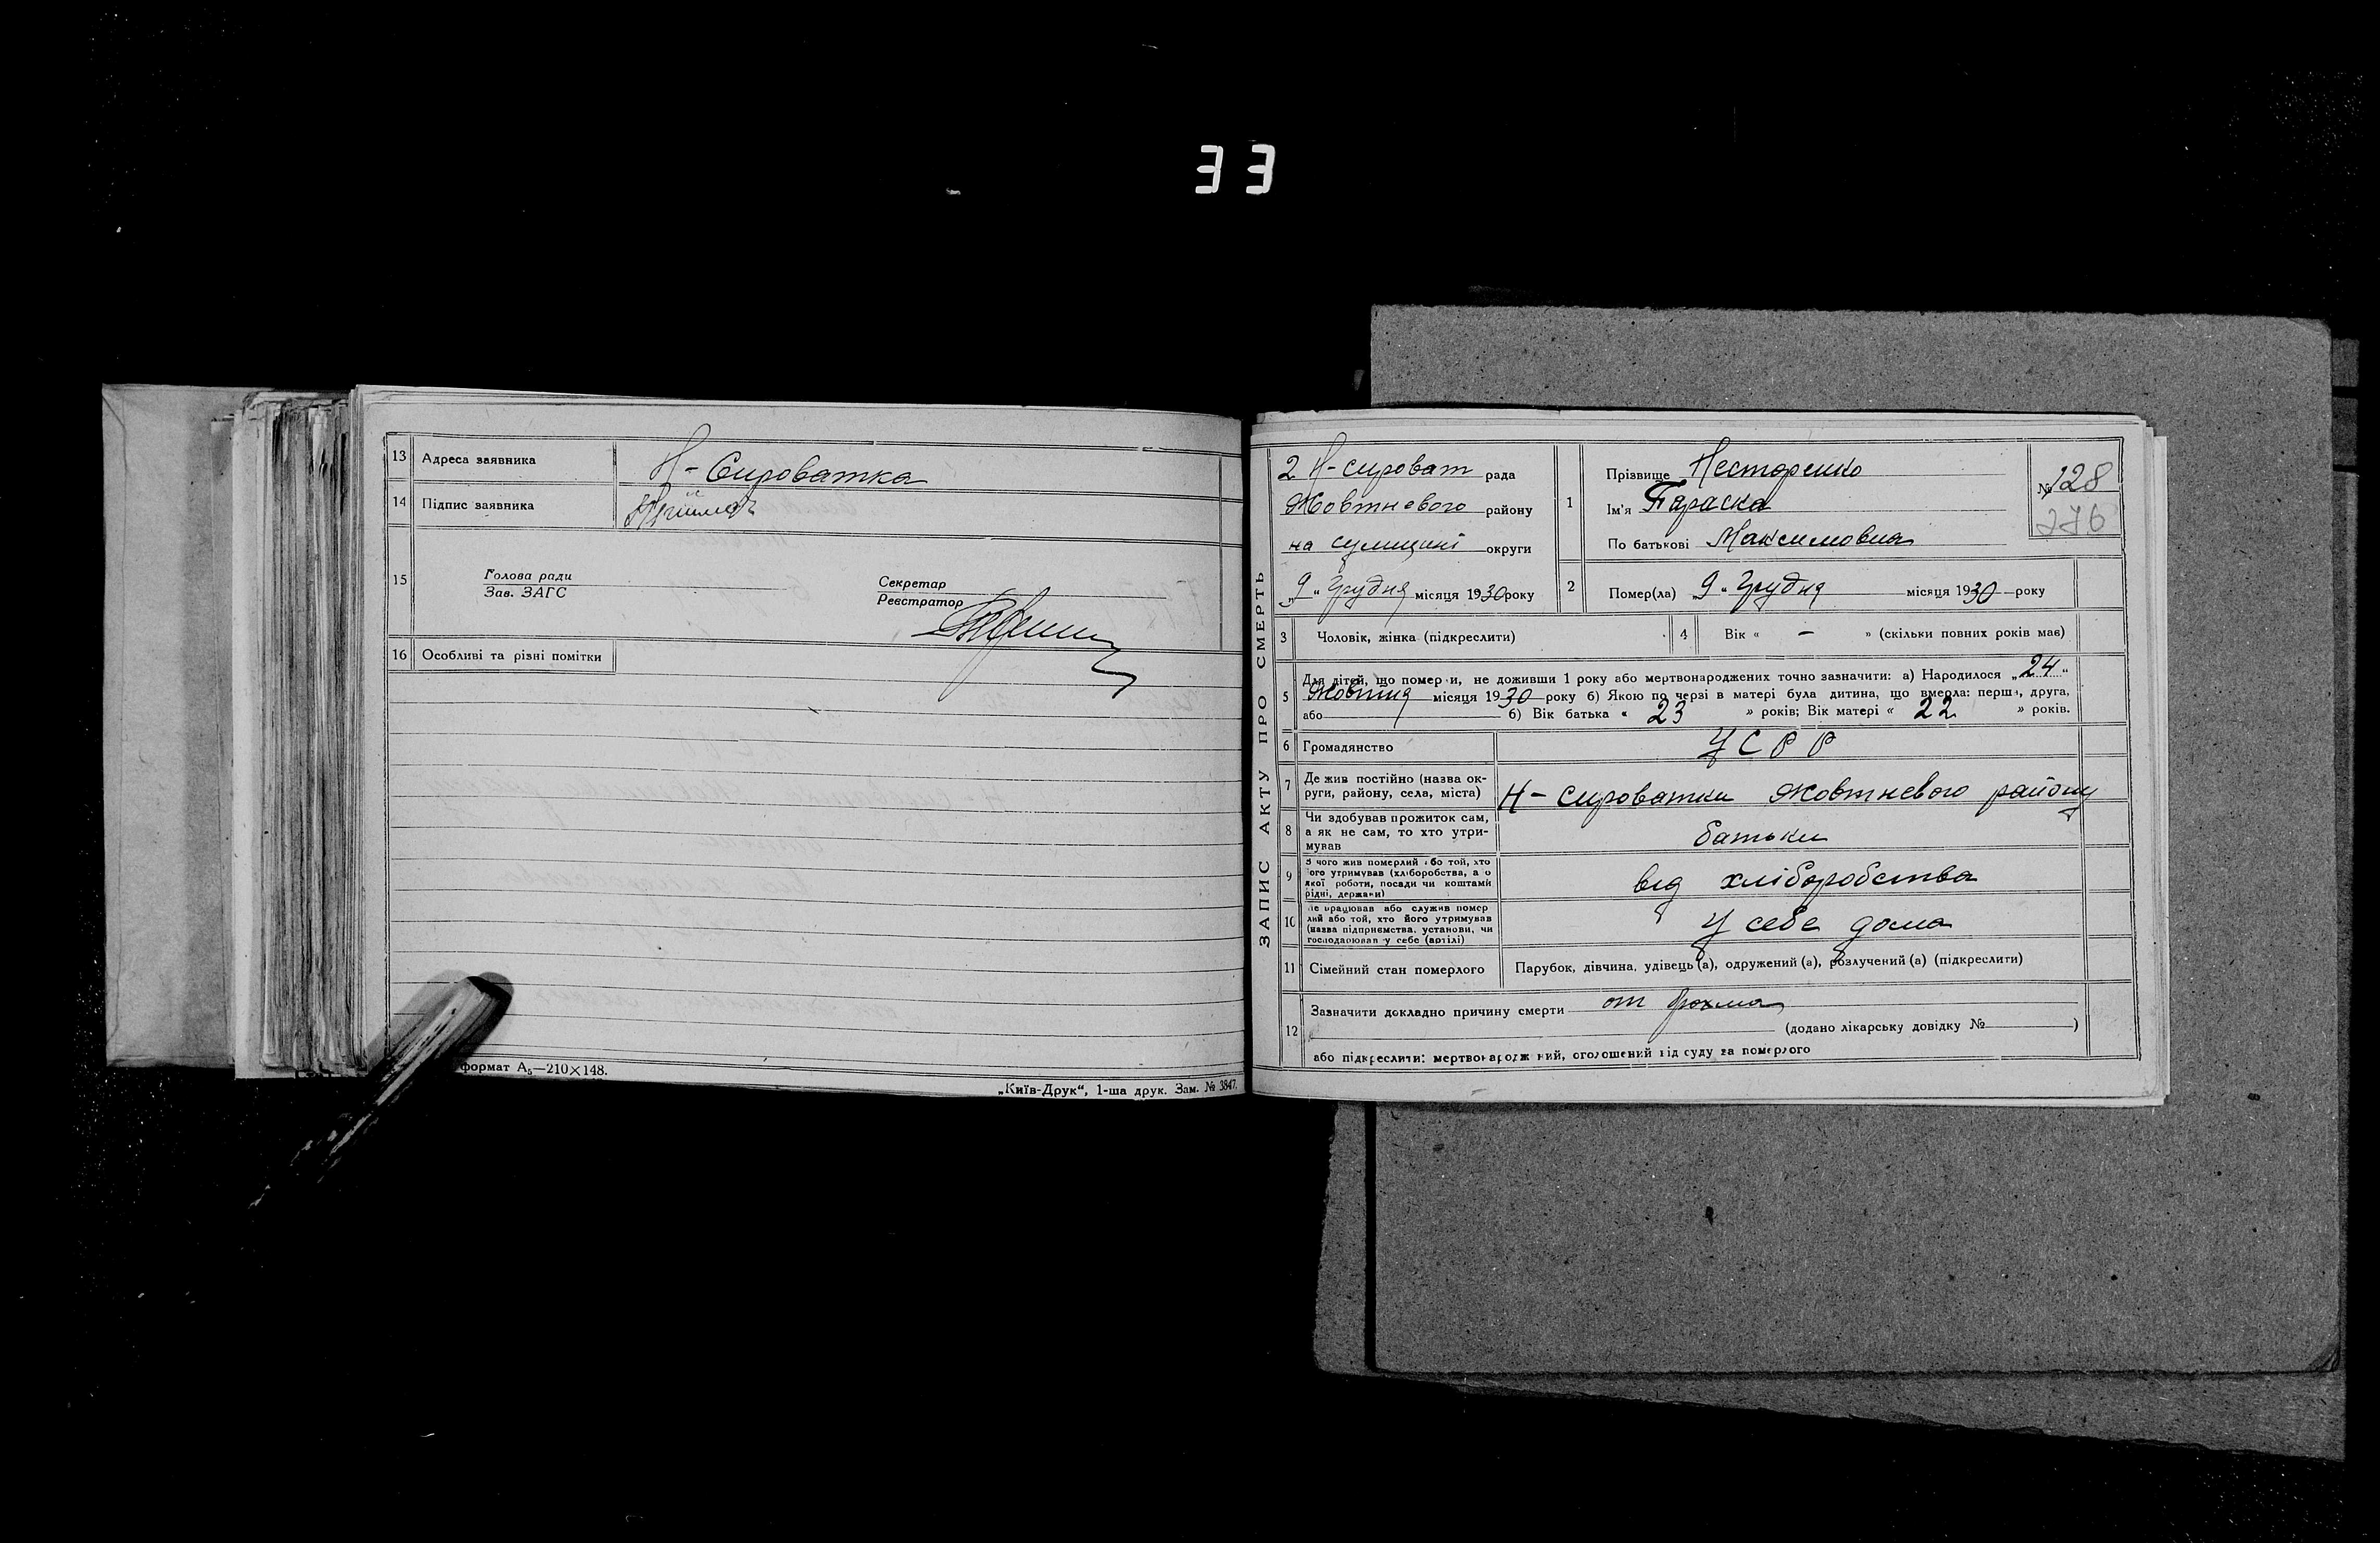 33
13 Адреса заявника Н-Сироватка
14 Підпис заявника
15 Голова ради
Зав. ЗАГС
Секретар
Реєстратор
16 Особливі та різні помітки
формат А5—210×148.
„Київ-Друк“, 1-ша друк. Зам. № 3847.
ЗАПИС АКТУ ПРО СМЕРТЬ
2 Н-сироват рада
Жовтневого району
на сумщині округи
„9“ Грудня місяця 1930 року
1 Прізвище Несторенко
Ім'я Параска
По батькові Максимовна
№ 128
276
2 Помер(ла) „9“ Грудня місяця 1930 року
3 Чоловік, жінка (підкреслити)
4 Вік « – » (скільки повних років має)
5 Для дітей, що померли, не доживши 1 року або мертвонароджених точно зазначити: а) Народилося „24“
Жовтня місяця 1930 року б) Якою по черзі в матері була дитина, що вмерла: перша, друга,
або б) Вік батька « 23 » років; Вік матері « 22 » років.
6 Громадянство УСРР
7 Де жив постійно (назва ок-
руги, району, села, міста) Н-Сироватки Жовтневого району
8 Чи здобував прожиток сам,
а як не сам, то хто утри-
мував батьки
9 З чого жив померлий або той, хто
його утримував (хліборобства, а о
якої роботи, посади чи коштами
рідні, держави) від хліборобства
10 Де працював або служив помер
лий або той, хто його утримував
(назва підприємства, установи, чи
господарював у себе (артілі) У себе дома
11 Сімейний стан померлого Парубок, дівчина, удівець(а), одружений(а), розлучений(а) (підкреслити)
12 Зазначити докладно причину смерти от
(додано лікарську довідку № )
або підкреслити: мертвонароджений, оголошений від суду за померлого